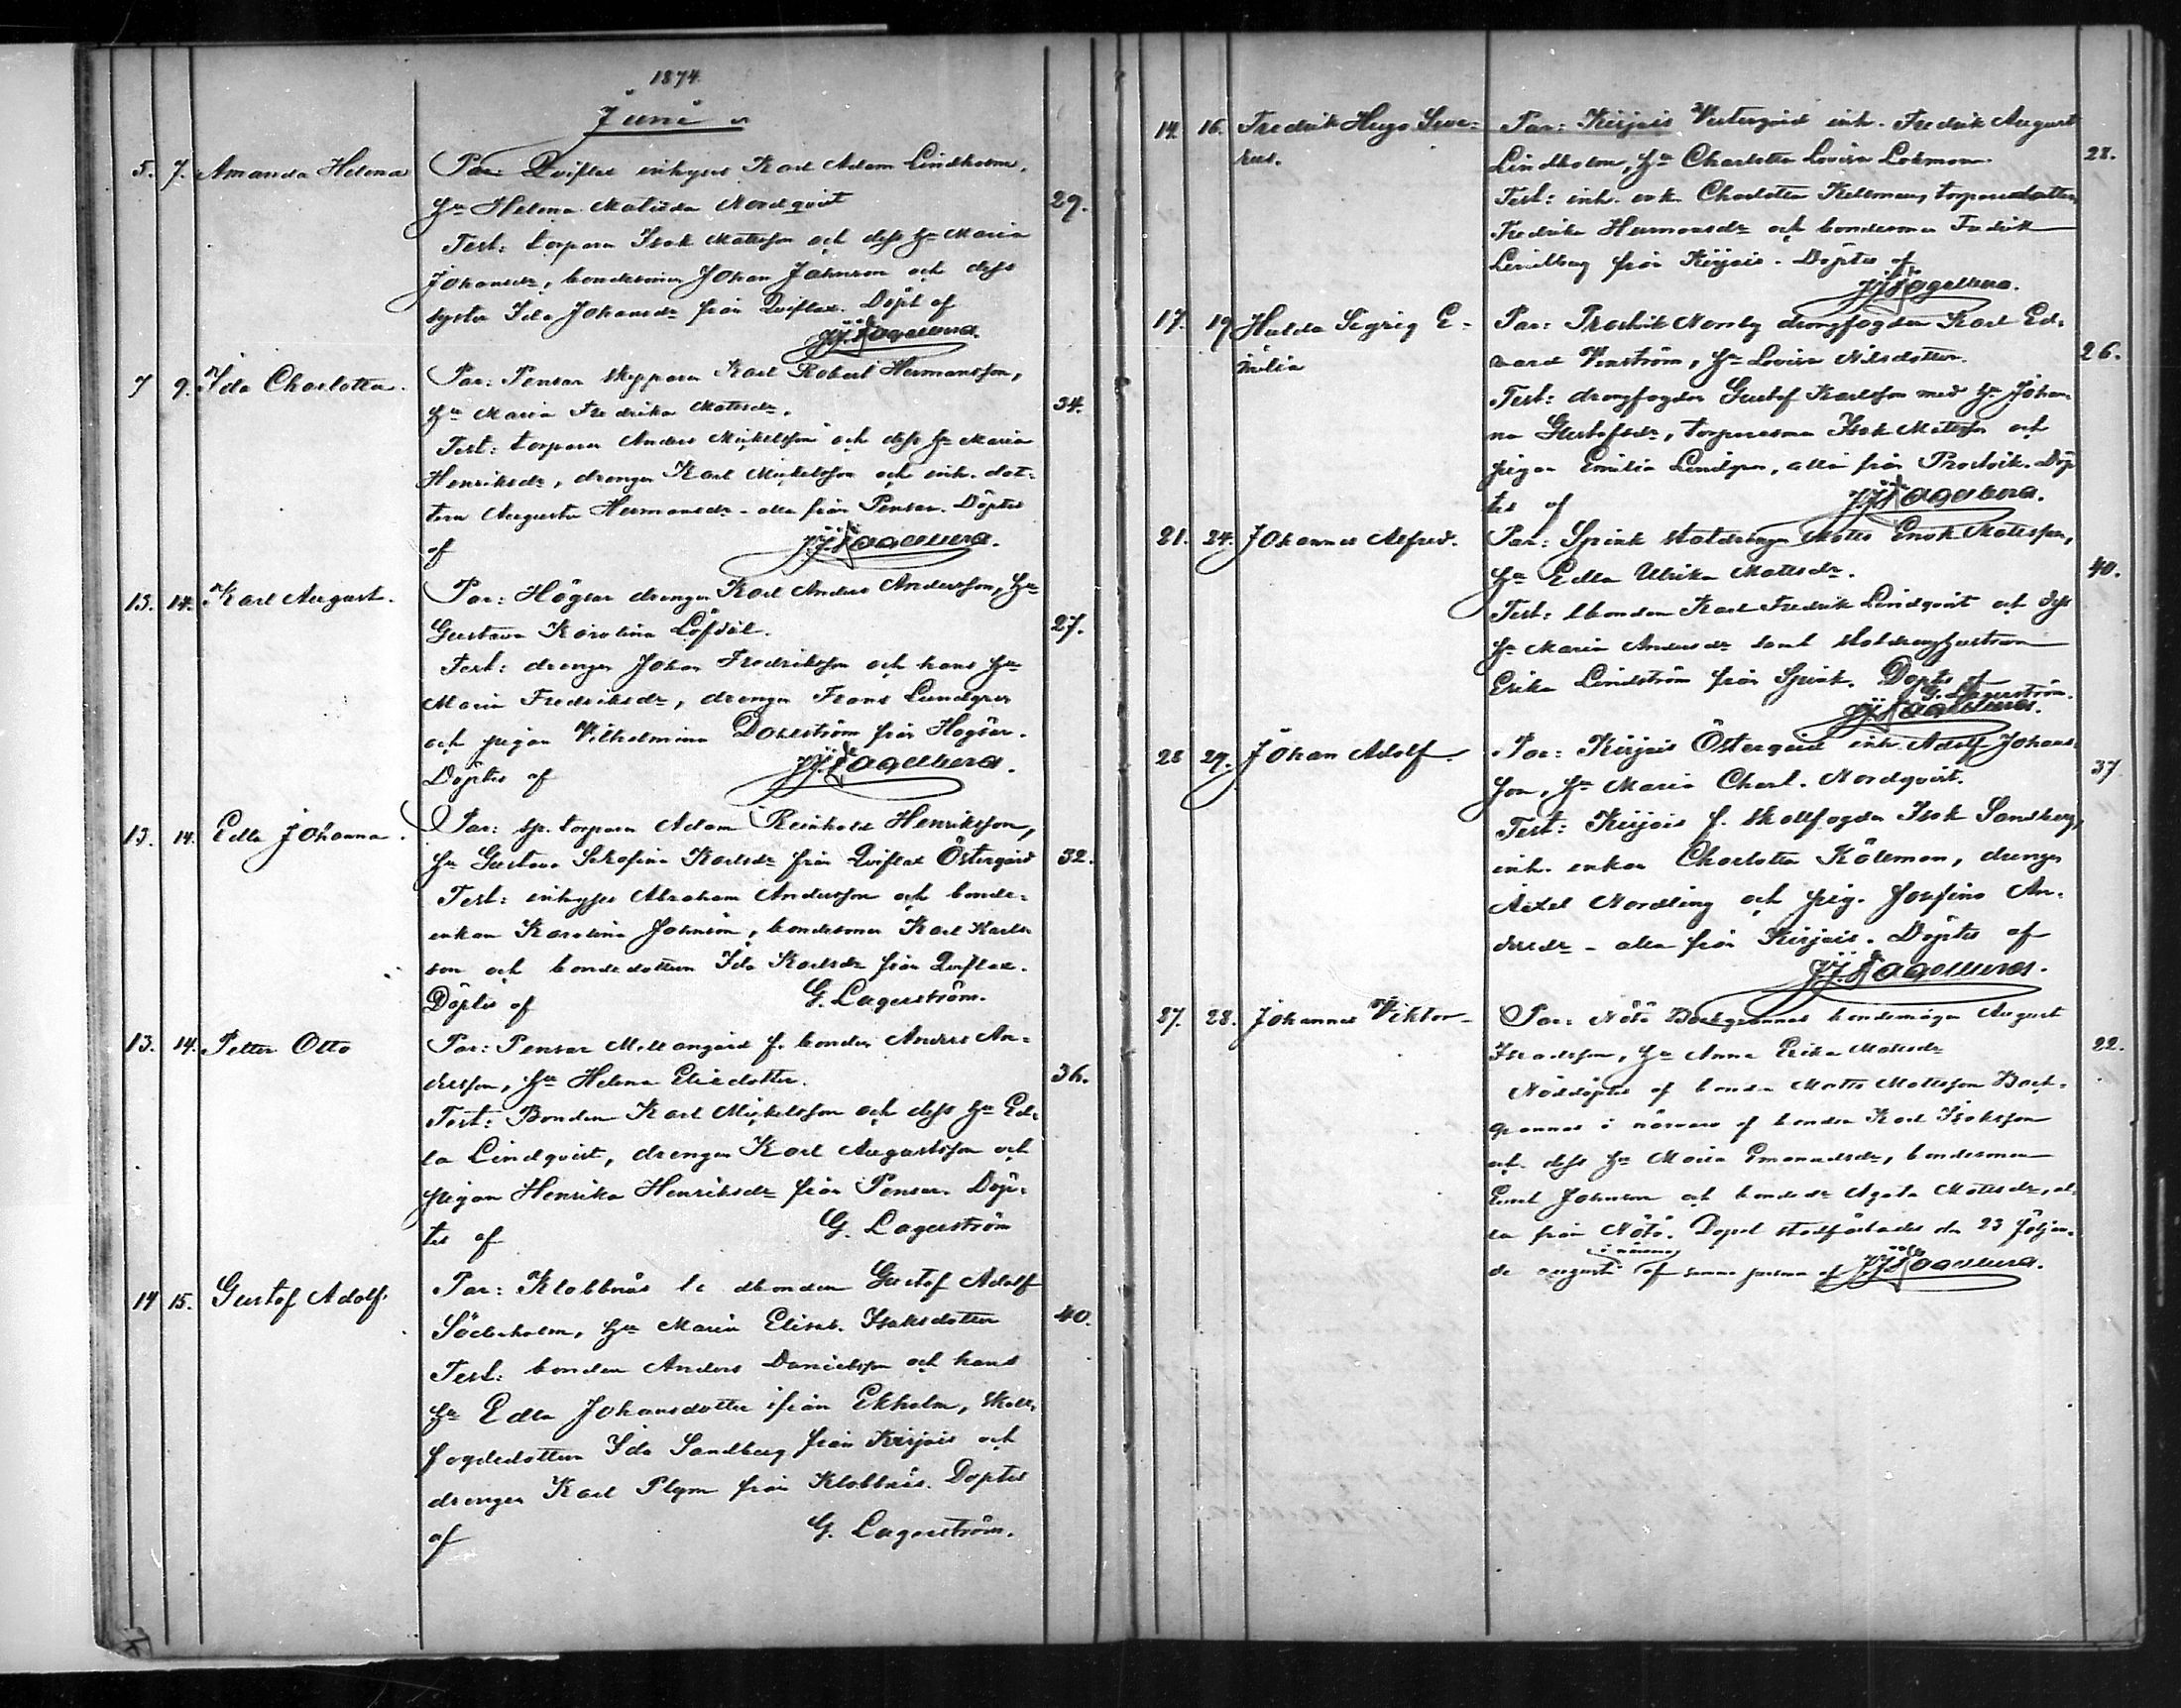 1874.
Juni
5. 7. Amanda Helena Par: Qviflax inhyses Karl Adam Lindholm,
Hu Helena Matilda Nordqvist 29.
Test: torparn Isak Matsson och dess Hu Maria
Johansdr, bondesonen Johan Johnsson och dess
syster Ida Johansdr från Qviflax. Döpt af
7 9. Ida Charlotta. Par: Pensar skepparn Karl Robert Hermansson,
Hu Maria Fredrika Matsdr. 34.
Test: torparn Anders Mickelsson och dess Hu Maria
Henriksdr, drengen Karl Mickelsson och inh. dot-
tern Augusta Hermansdr - alla från Pensar. Döptes
af
13. 14. Karl August. Par: Högsar drengen Karl Anders Andersson, Hu
Gustava Karolina Löfdal. 27.
Test: drengen Johan Fredriksson och hans Hu
Maria Fredriksdr, drengen Frans Lundgren
och pigan Vilhelmina Dahlström från Högsar.
Döptes af
13. 14. Edla Johanna. Par: sp. torparn Adam Reinhold Henriksson,
Hu Gustava Serafina Karlsdr från Qviflax Östergård 32.
Test: inhyses Abraham Andersson och bonde-
enkan Karolina Johnsson, bondesonen Karl Karls-
son och bondedottern Ida Karlsdr från Qviflax.
Döptes af G. Lagerström.
13. 14. Petter Otto Par: Pensar Mellangård f. bonden Anders An-
dersson, Hu Helena Eliedotter. 36.
Test: Bonden Karl Mickelsson och dess Hu Ed-
la Lindqvist, drengen Karl Augustsson och
pigan Henrika Henriksdr från Pensar. Döp-
tes af G. Lagerström
14 15. Gustaf Adolf. Par: Klobbnäs bonden Gustaf Adolf
Söderholm, Hu Maria Elisab. Isaksdotter 40.
Test: bonden Anders Danielsson och hans
Hu Edla Johansdotter ifrån Ekholm, skall-
fogdedottern Ida Sandberg från Kirjais och
drengen Karl Plym från Klobbnäs. Döptes
af G. Lagerström.
14. 16. Fredrik Hugo Seve- Par: Kirjais Vestergård inh. Fredrik August
rus. Lindholm, Hu Charlotta Lovisa 28.
Test: inh. enk. Charlotta torparedottern
Fredrika Hermansdr och bondesonen Fredrik
från Kirjais. Döptes af
17. 19 Hulda Sigrig E- Par: Prostvik Norrby drengfogden Karl Ed-
milia vard Venström, Hu Lovisa Nilsdotter. 26.
Test: drengfogden Gustaf Karlsson med Hu Johan-
na Gustafsdr, torparesonen Isak Matsson och
pigan Emilia Lindgren, alla från Prostvik. Döp-
tes af
21. 24. Johannes Alfred. Par: Spink statdrengen Mats Enok Matsson,
Hu Edla Ulrika Matsdr. 40.
Test: bonden Karl Fredrik Lindqvist och dess
Hu Maria Andersdr samt statdrenghustrun
Erika Lindström från Spink. Döptes af
G. Lagerström.
28 29. Johan Adolf. Par: Kirjais Östergård inh. Adolf Johans-
son, Hu Maria Charl. Nordqvist. 37
Test: Kirjais f. skallfogden Isak Sandberg,
inh. enkan Charlotta Källman, drengen
Axel Nordling och pig. Josefina An-
dersdr - alla från Kirjais. Döptes af
27. 28. Johannes Viktor Par: Nötö Backgrannas bondemågen August
Isaksson, Hu Anna Erika Matsdr 22.
Nöddöptes af bonden Matts Matsson Back-
grannas i närvaro af bonden Karl Isaksson
och dess Hu Maria Emanuelsdr, bondesonen
Emil Johnsson och bondedr Agata Matsdr, al-
la från Nötö. Dopet stadfästades den 23 följan-
de augusti i närvaro af samma personer af